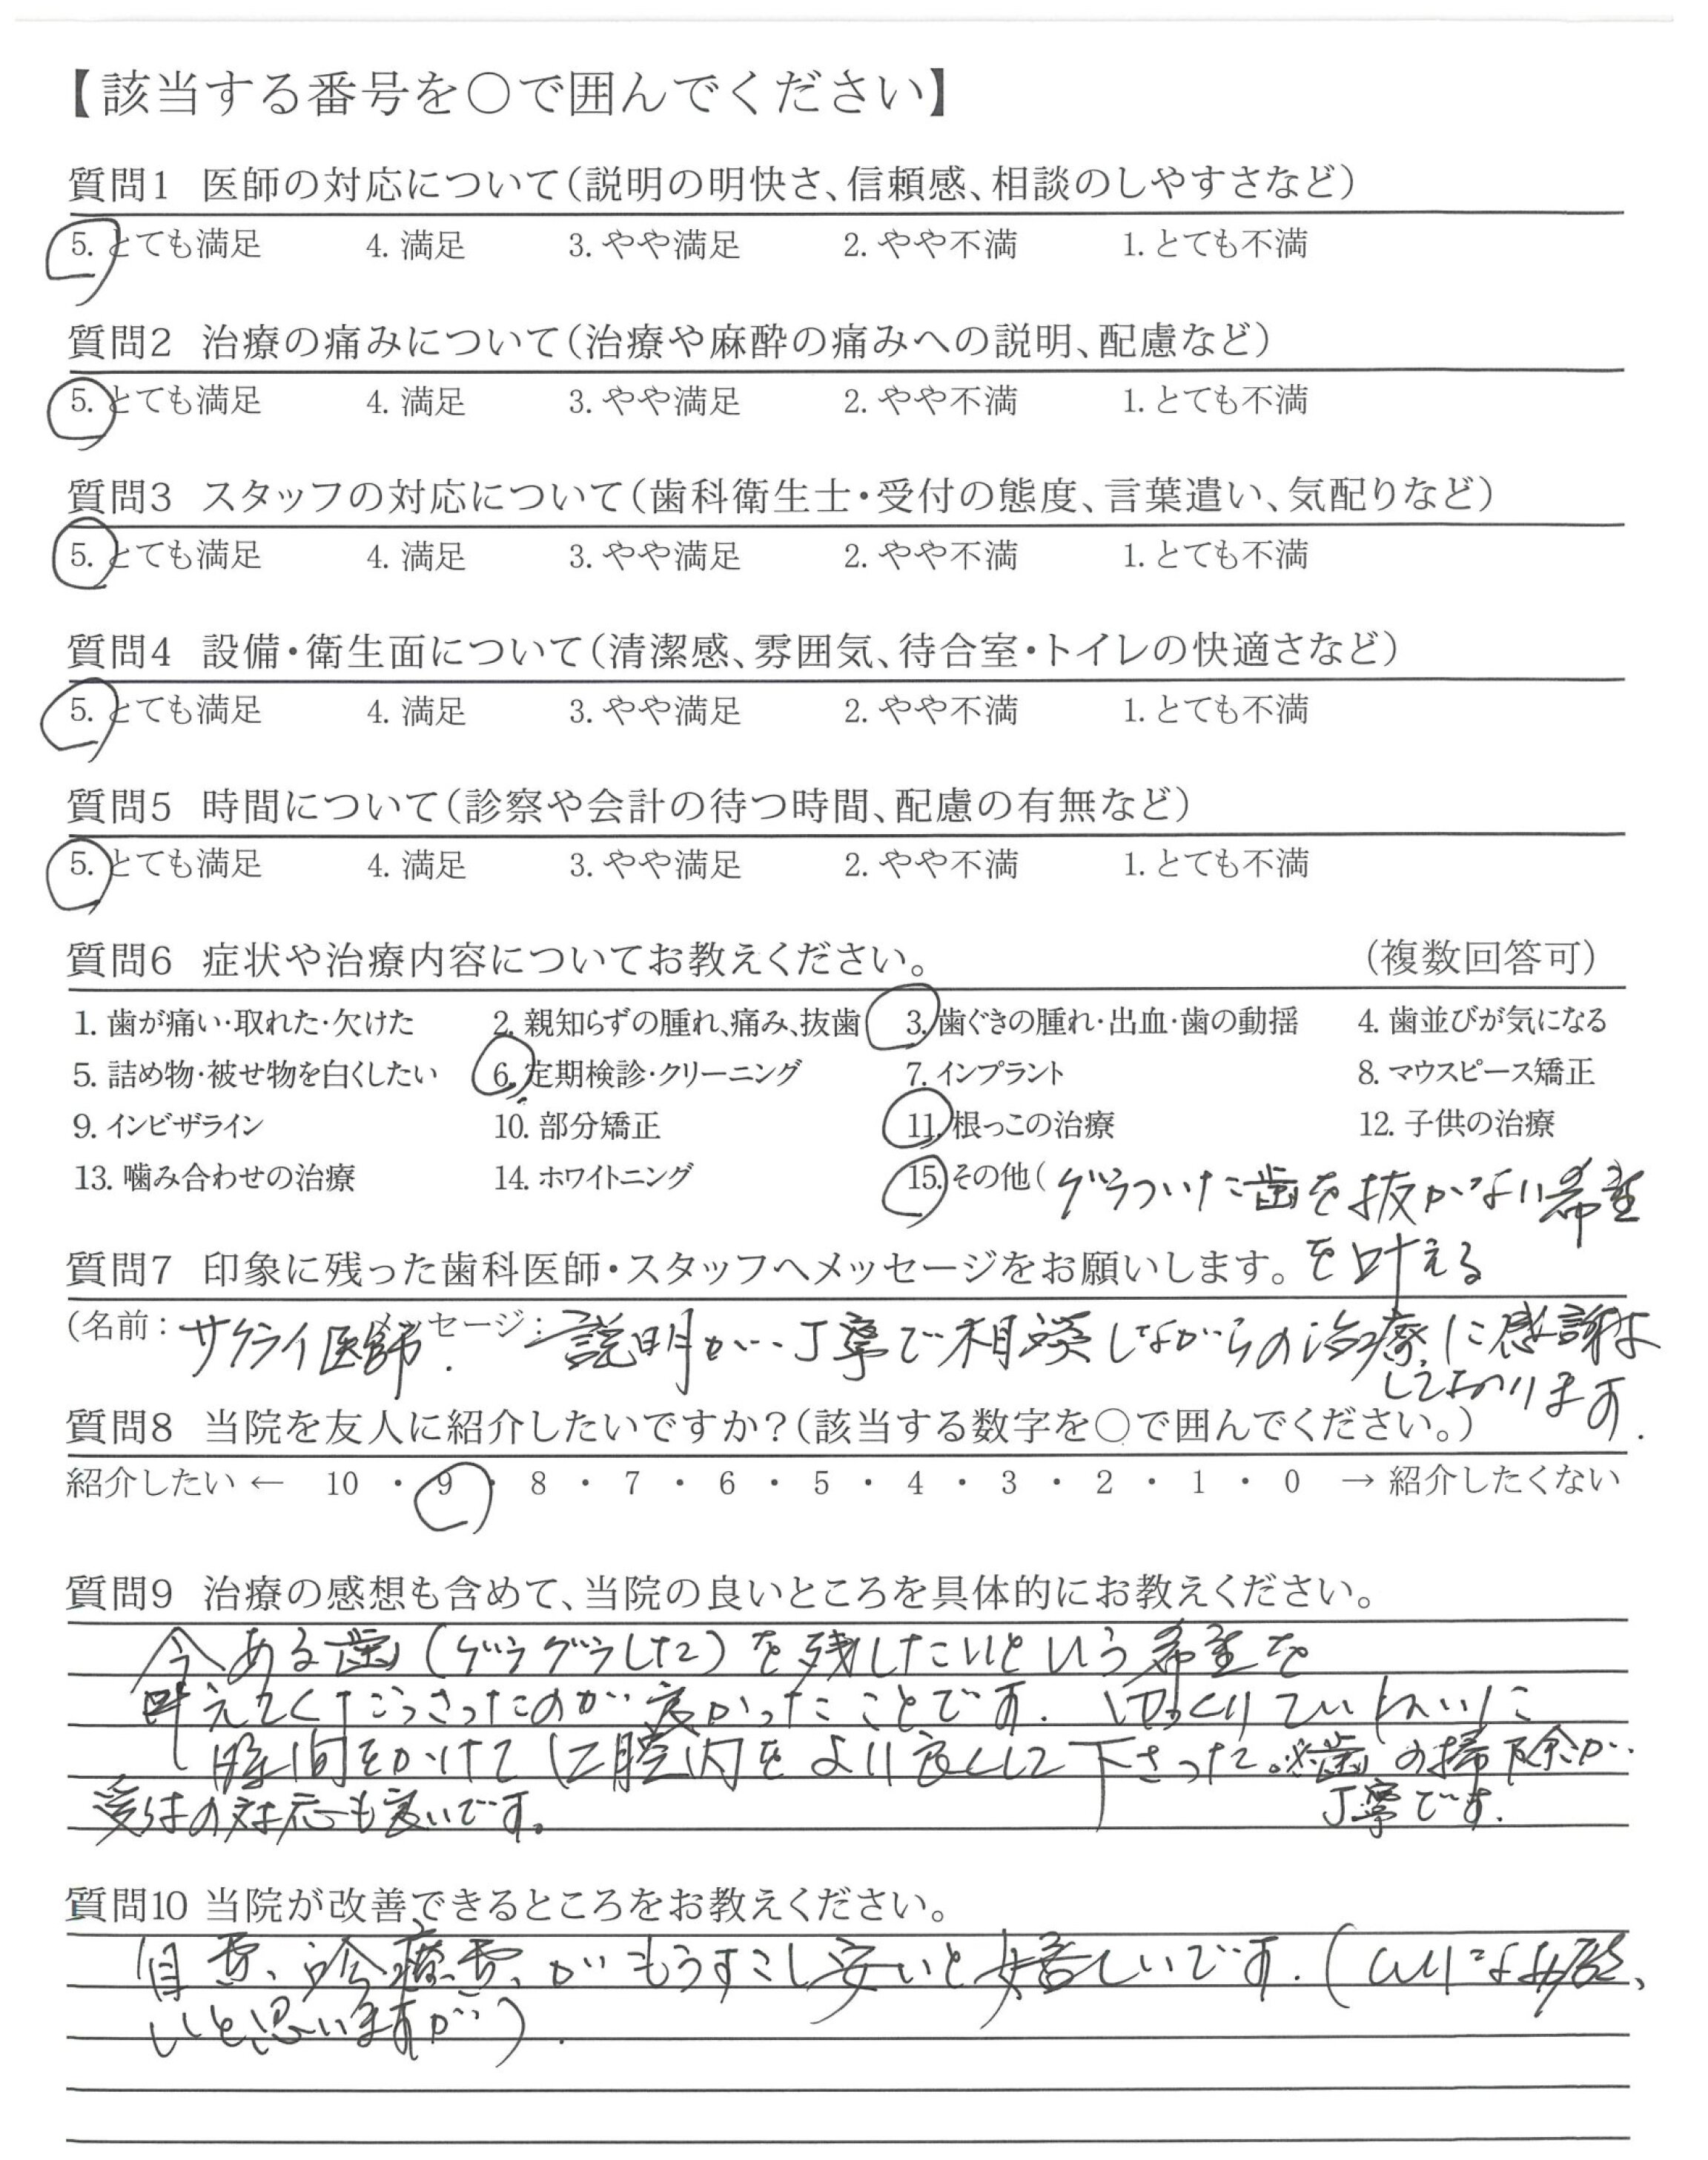 【該当する番号を○で囲んでください】
質問1 医師の対応について(説明の明快さ、信頼感、相談のしやすさなど)
5. とても満足 4. 満足 3. やや満足 2. やや不満 1. とても不満
質問2 治療の痛みについて(治療や麻酔の痛みへの説明、配慮など)
5. とても満足 4. 満足 3. やや満足 2. やや不満 1. とても不満
質問3 スタッフの対応について(歯科衛生士・受付の態度、言葉遣い、気配りなど)
5. とても満足 4. 満足 3. やや満足 2. やや不満 1. とても不満
質問4 設備・衛生面について(清潔感、雰囲気、待合室・トイレの快適さなど)
5. とても満足 4. 満足 3. やや満足 2. やや不満 1. とても不満
質問5 時間について(診察や会計の待つ時間、配慮の有無など)
5. とても満足 4. 満足 3. やや満足 2. やや不満 1. とても不満
質問6 症状や治療内容についてお教えください。 (複数回答可)
1. 歯が痛い・取れた・欠けた 2. 親知らずの腫れ、痛み、抜歯 3. 歯ぐきの腫れ・出血・歯の動揺 4. 歯並びが気になる
5. 詰め物・被せ物を白くしたい 6. 定期検診・クリーニング 7. インプラント 8. マウスピース矯正
9. インビザライン 10. 部分矯正 11. 根っこの治療 12. 子供の治療
13. 噛み合わせの治療 14. ホワイトニング 15. その他( グラついた歯を抜かない希望
を叶える
質問7 印象に残った歯科医師・スタッフへメッセージをお願いします。
(名前: サクライ医師. メッセージ: 説明が丁寧で相談しながらの治療に感謝
しております.
質問8 当院を友人に紹介したいですか?(該当する数字を○で囲んでください。)
紹介したい ← 10 ・ 9 ・ 8 ・ 7 ・ 6 ・ 5 ・ 4 ・ 3 ・ 2 ・ 1 ・ 0 → 紹介したくない
質問9 治療の感想も含めて、当院の良いところを具体的にお教えください。
今ある歯(グラグラした)を残したいという希望を
叶えてくださったのが良かったことです. ゆっくりていねいに
時間をかけて口腔内をより良くして下さった。※歯の掃除が
丁寧です.
受付の対応も良いです。
質問10 当院が改善できるところをお教えください。
自費、診療費、がもうすこし安いと嬉しいです. (
いと思いますが).